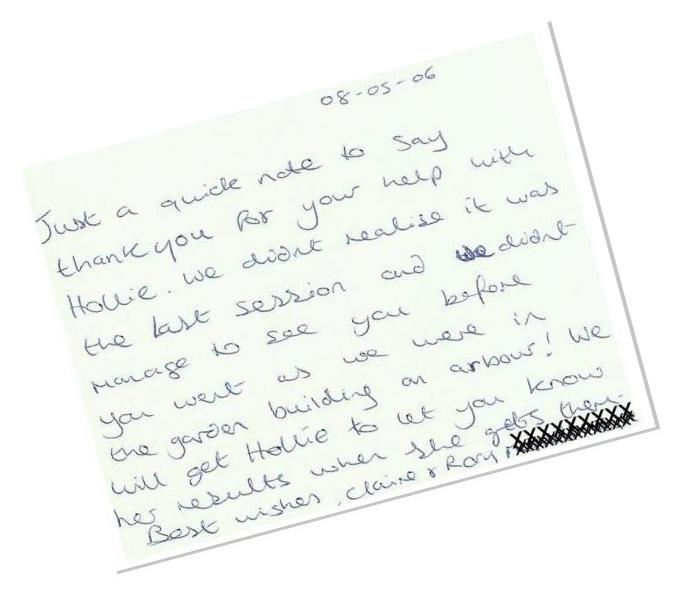 08-05-06
Just a quick note to say
thank you for your help with
Hollie. We didnt realise it was
the last session and we didnt
manage to see you before
you went as we were in
the garden building an arbour! We
will get Hollie to let you know
her results when she gets them.
Best wishes, Claire & Rory